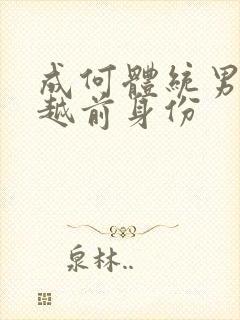 成何體統男
越前身份
泉林..